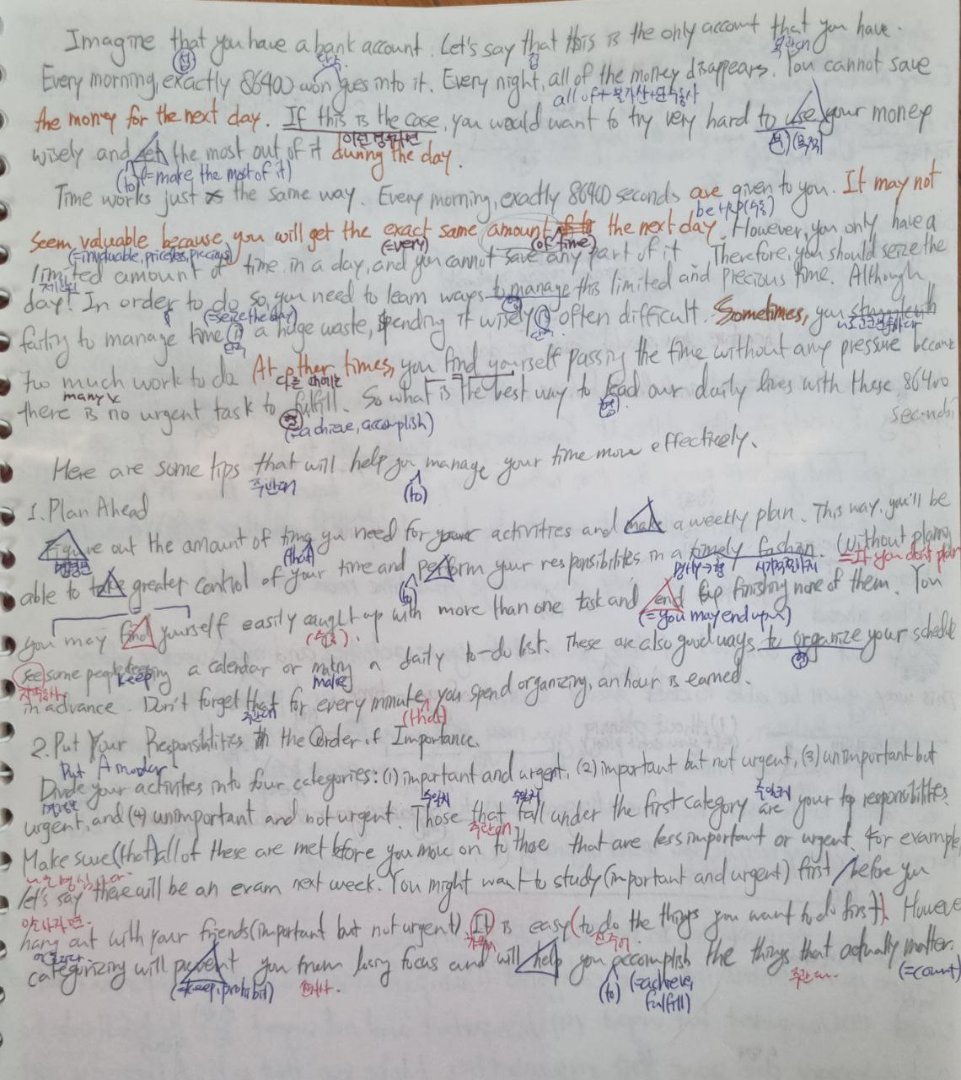 Imagine that you have a bank account. Let's say that this is the only account that you have.
Every morning, exactly 86400 won goes into it. Every night, all of the money disappears. You cannot save
all of + 불가산 + 단수동사
the money for the next day. If this is the case, you would want to try very hard to use your money
wisely and get the most out of it during the day.
(to) (=make the most of it)
Time works just the same way. Every morning, exactly 86400 seconds are given to you. It may not
be + p.p (수동)
seem valuable because you will get the exact same amount the next day. However, you only have a
(=invaluable, priceless, precious) (=very) (of time)
limited amount of time in a day, and you cannot save any part of it. Therefore, you should seize the
day! In order to do so, you need to learn ways to manage this limited and precious time. Although
(=seize the day)
failing to manage time is a huge waste, spending it wisely is often difficult. Sometimes, you
too much work to do At other times, you find yourself passing the time without any pressure because
many x 다른 때에는
there is no urgent task to fulfill. So what is the best way to lead our daily lives with these 86400
seconds
(=achieve, accomplish)
Here are some tips that will help you manage your time more effectively.
주관대 (to)
1. Plan Ahead
Figure out the amount of time you need for your activities and make a weekly plan. This way, you'll be
명령문 (that)
able to take greater control of your time and perform your responsibilities in a timely fashion. Without planning
=If you don't plan
you may find yourself easily caught up with more than one task and end up finishing none of them. You
(=you may end up~)
see some people keeping a calendar or making a daily to-do list. These are also good ways to organize your schedule
지각동사 keep make
in advance. Don't forget that for every minute you spend organizing, an hour is earned.
(that)
2. Put Your Responsibilities in the Order of Importance.
Put A in order
Divide your activities into four categories: (1) important and urgent, (2) important but not urgent, (3) unimportant but
명령문
urgent, and (4) unimportant and not urgent. Those that fall under the first category are your top responsibilities.
Make sure (that) all of these are met before you move on to those that are less important or urgent. For example
let's say there will be an exam next week. You might want to study (important and urgent) first before you
hang out with your friends (important but not urgent). It is easy (to do the things you want to do first). However
categorizing will prevent you from losing focus and will help you accomplish the things that actually matter.
(=keep, prohibit) (to) (=achieve, fulfill) 주관대 (=count)